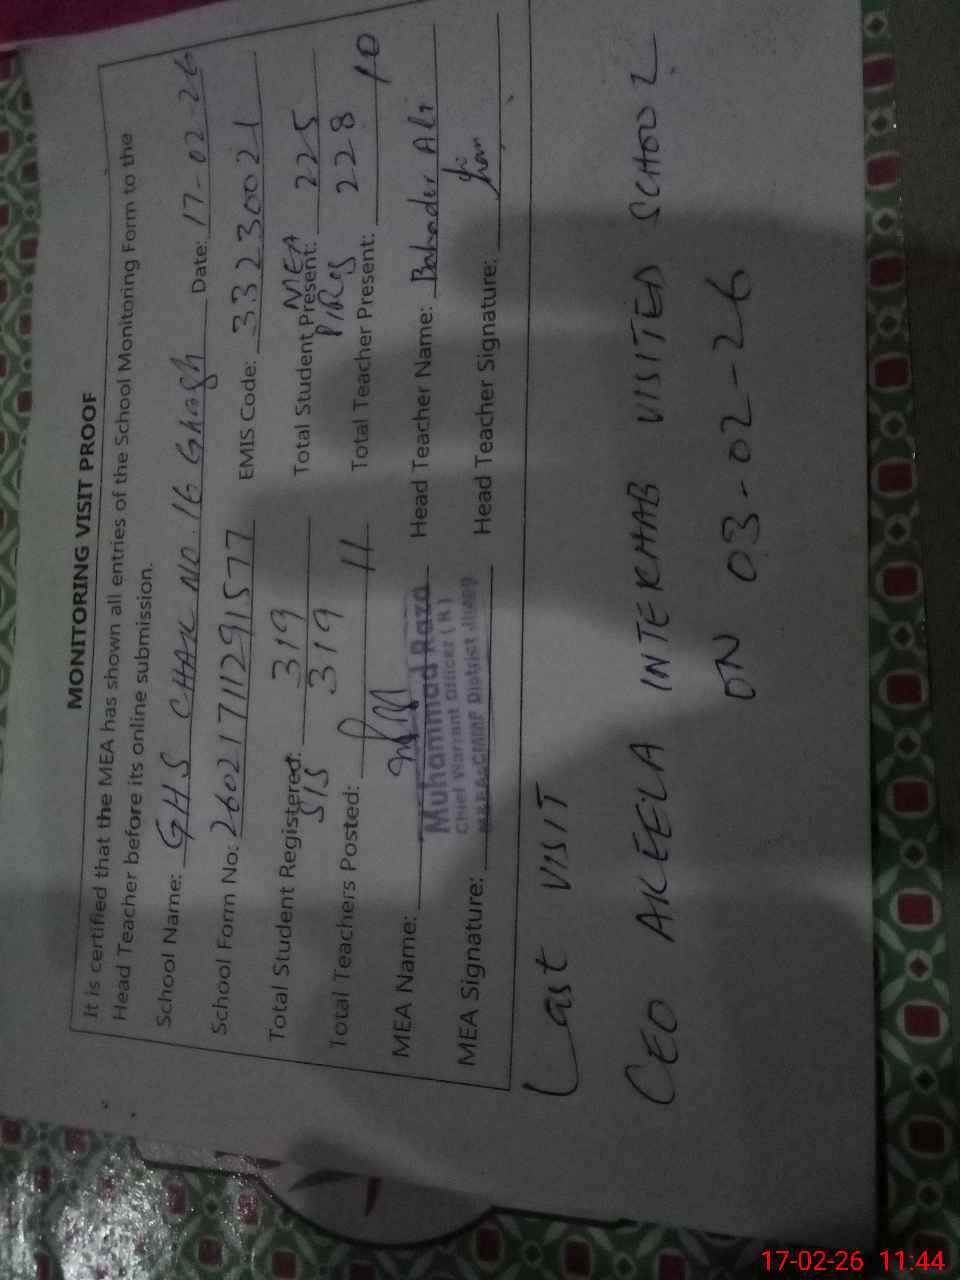 MONITORING VISIT PROOF
It is certified that the MEA has shown all entries of the School Monitoring Form to the
Head Teacher before its online submission.
School Name: GHS CHAK NO. 16 Ghagh Date: 17-02-26
School Form No: 26021711291577 EMIS Code: 33230021
Total Student Registered: 319 Total Student Present: MEA 225
SIS 319 P/Reg 228
Total Teachers Posted: 11 Total Teacher Present: 10
MEA Name: Head Teacher Name: Bahader Ali
Muhammad Raza
Chief Warrant Officer (R)
MEA District Jhang
MEA Signature: Head Teacher Signature:
Last VISIT
CEO AKEELA INTEKHAB VISITED SCHOOL
ON 03-02-26
17-02-26 11:44